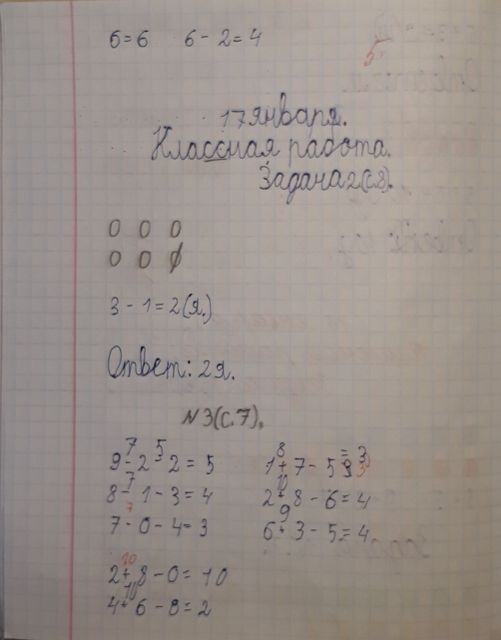 6=6 6-2=4
5
17 января.
Классная работа.
Задача 2(с.8).
0 0 0
0 0 0
3-1=2(я.)
Ответ: 2я.
№3(с.7).
7 5
9-2-2=5
7
8-1-3=4
7
7-0-4=3
10
2+8-0=10
10
4+6-8=2
8
1+7-5=3
10
2+8-6=4
9
6+3-5=4